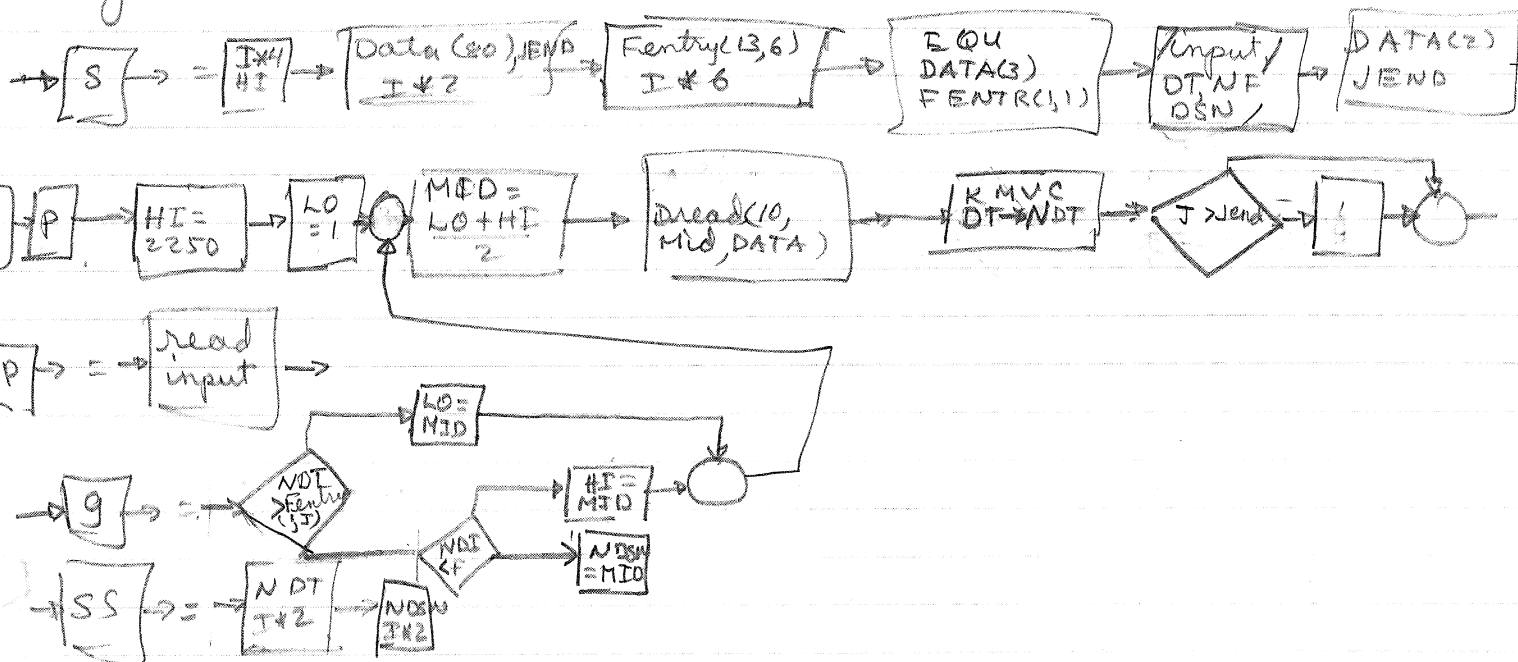 S = I*4 HI Data (20), JEND I*2 Fentry(13,6) I*6 EQU DATA(3) FENTR(1,1) input/ DT, NF DSN DATA(2) JEND
P HI= 2250 LO =1 MID= LO+HI 2 Dread(10, Mid, DATA) KMVC DT→NDT J >Jend
P = read input
LO= MID
g = NDT >Fentry (j,I) NDT <F HI= MID NDSN =MID
SS = NDT I*2 NDSN I*2